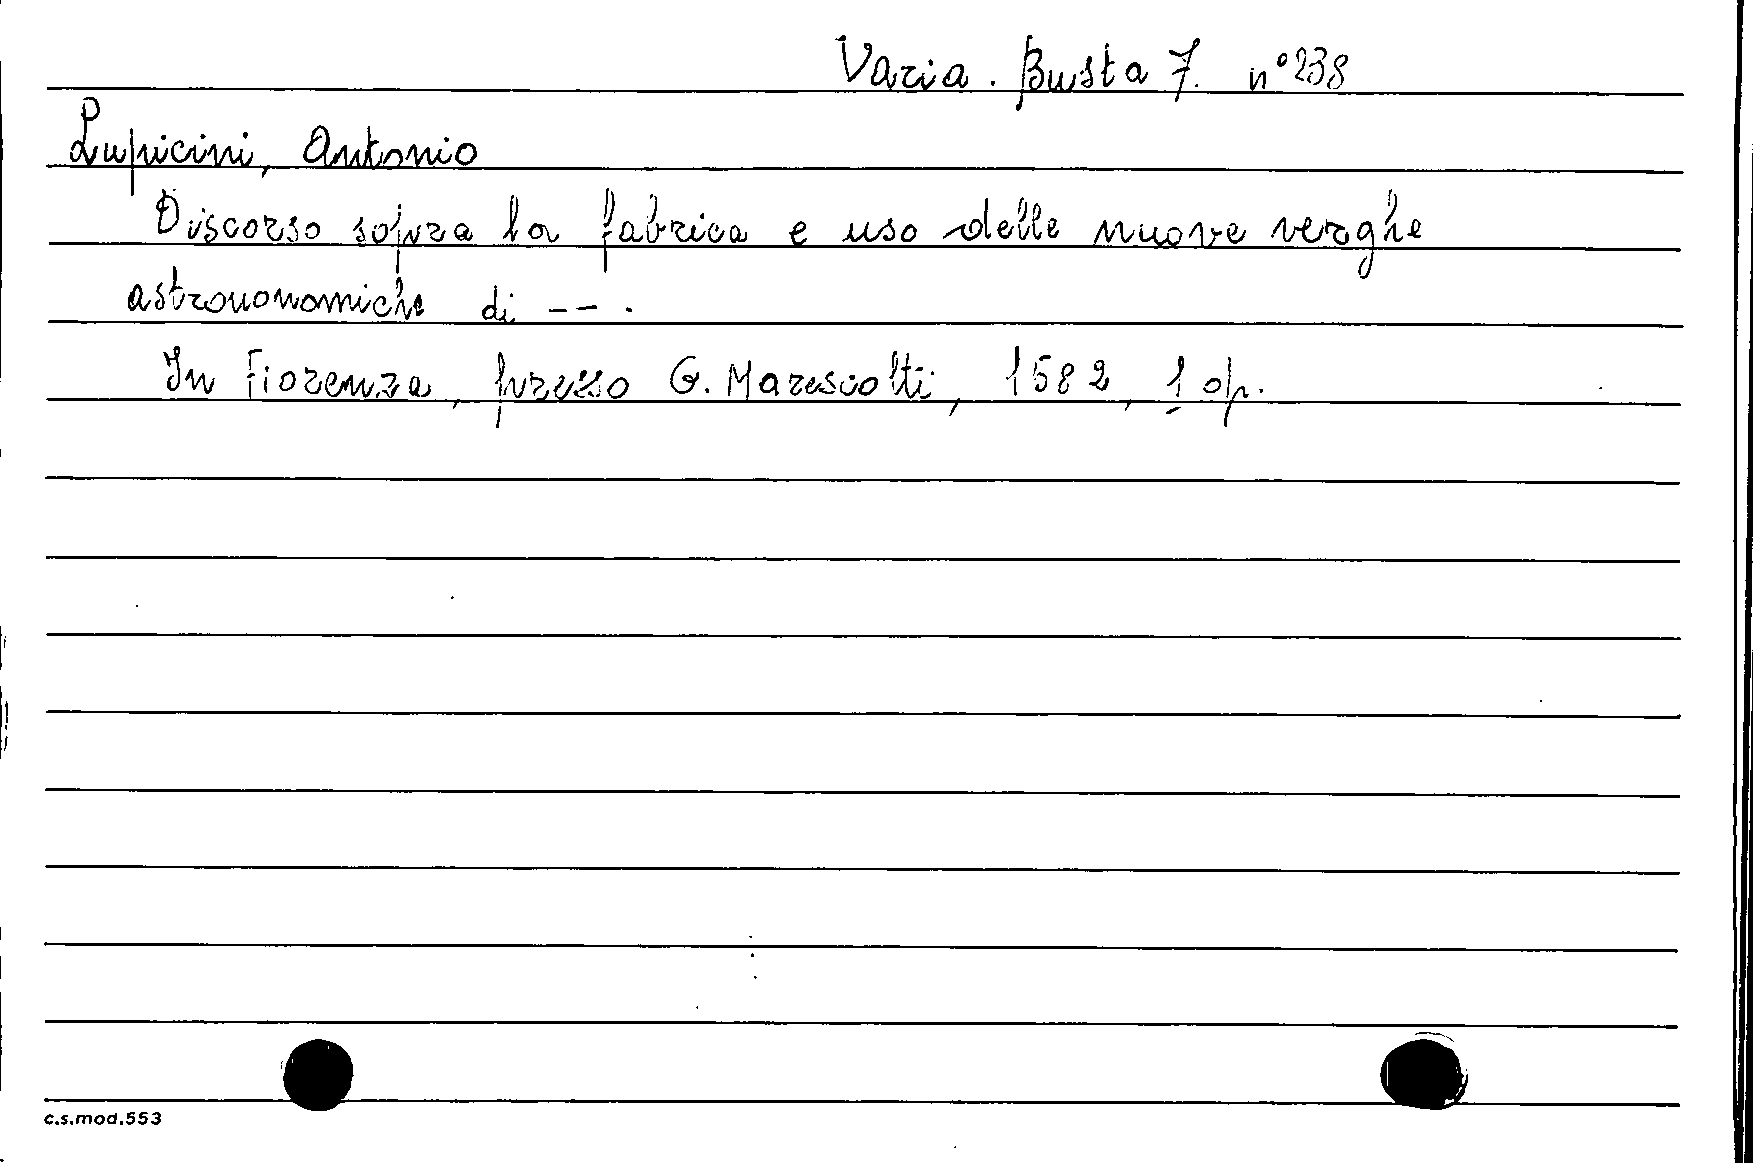 Varia. Busta 7. n° 238
Lupicini, Antonio
Discorso sopra la fabrica e uso delle nuove verghe
astrononomiche di -- .
In Fiorenza, presso G. Marescotti, 1582, 1 op.
c.s.mod.553